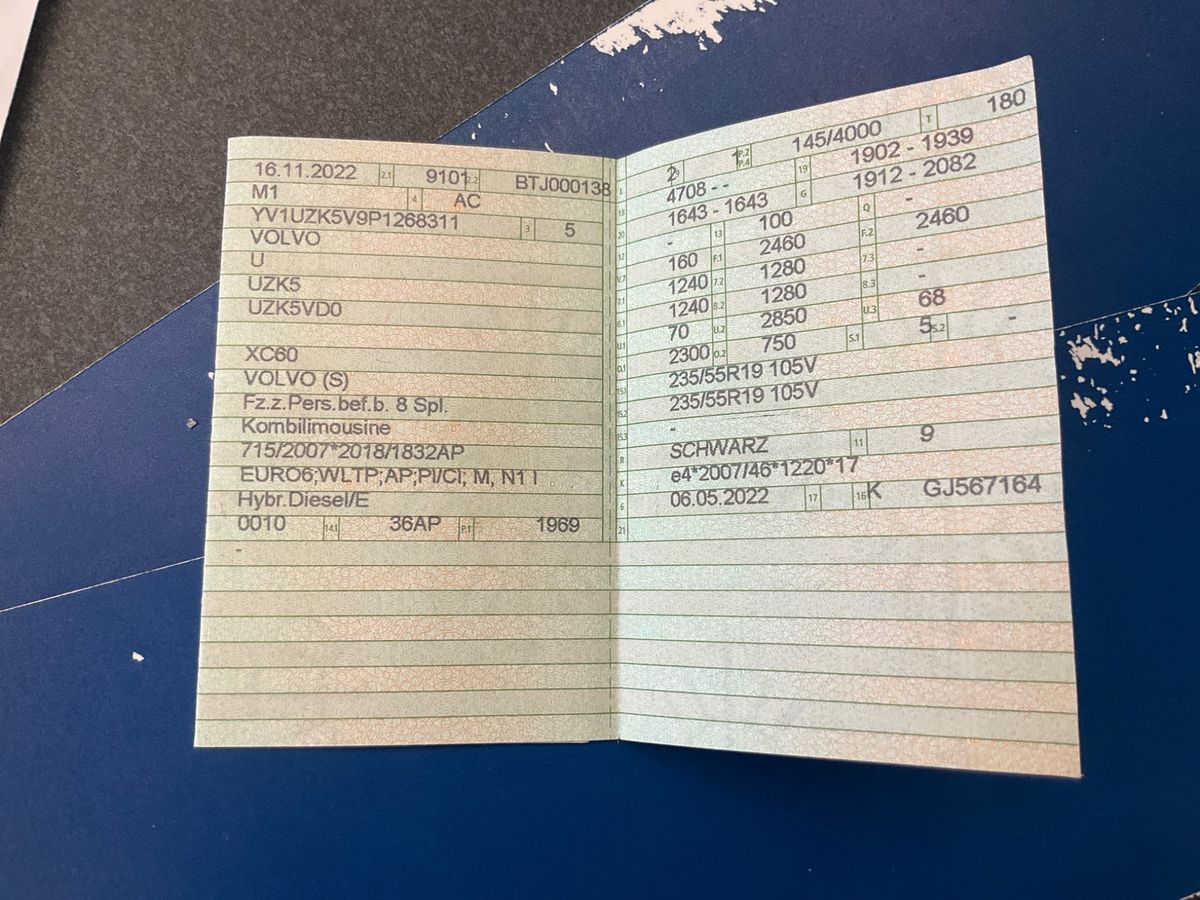 16.11.2022 2.1 9101 2.2 BTJ000138
M1 4 AC
YV1UZK5V9P1268311 3 5
VOLVO
U
UZK5
UZK5VD0
XC60
VOLVO (S)
Fz.z.Pers.bef.b. 8 Spl.
Kombilimousine
715/2007*2018/1832AP
EURO6;WLTP;AP;PI/CI; M, N1 I
Hybr.Diesel/E
0010 14.1 36AP P.1 1969
-
2 9 1 P.2 P.4 145/4000 T 180
18 4708 - - 19 1902 - 1939
20 1643 - 1643 G 1912 - 2082
12 - 13 100 Q -
V.7 160 F.1 2460 F.2 2460
7.1 1240 7.2 1280 7.3 -
8.1 1240 8.2 1280 8.3 -
U.1 70 U.2 2850 U.3 68
O.1 2300 O.2 750 S.1 5 S.2 -
15.1 235/55R19 105V
15.2 235/55R19 105V
15.3 -
R SCHWARZ 11 9
K e4*2007/46*1220*17
6 06.05.2022 17 16 K GJ567164
21